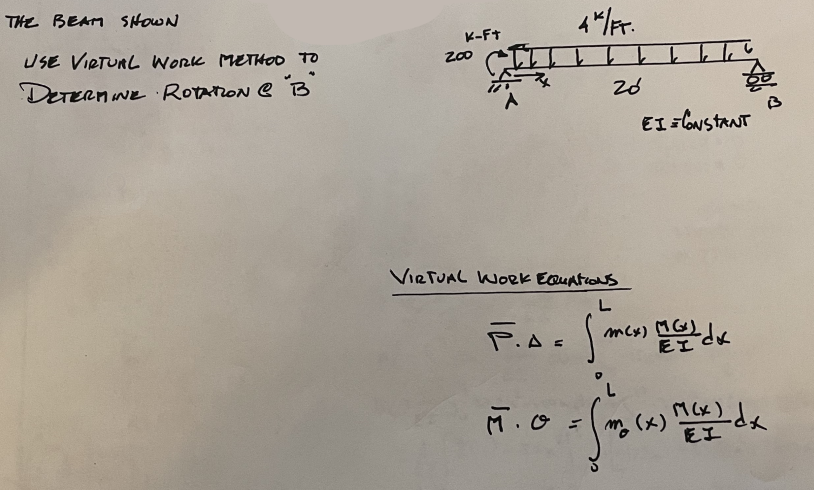 THE BEAM SHOWN
USE VIRTUAL WORK METHOD TO
DETERMINE ROTATION @ "B"
4 K/FT.
K-FT
200
x
20'
A
B
EI = CONSTANT
VIRTUAL WORK EQUATIONS
P̅ · Δ = ∫₀ᴸ m(x) M(x)/EI dx
M̅ · θ = ∫₀ᴸ m_θ(x) M(x)/EI dx